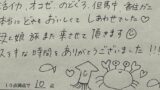 活イカ、オコゼ、のどぐろ、但馬牛
本当にどれもおいしくて しあわせでした♡
又と娘 旅また来させて頂きます😊
ステキな時間をありがとうございました!!
10点満点で 10 点